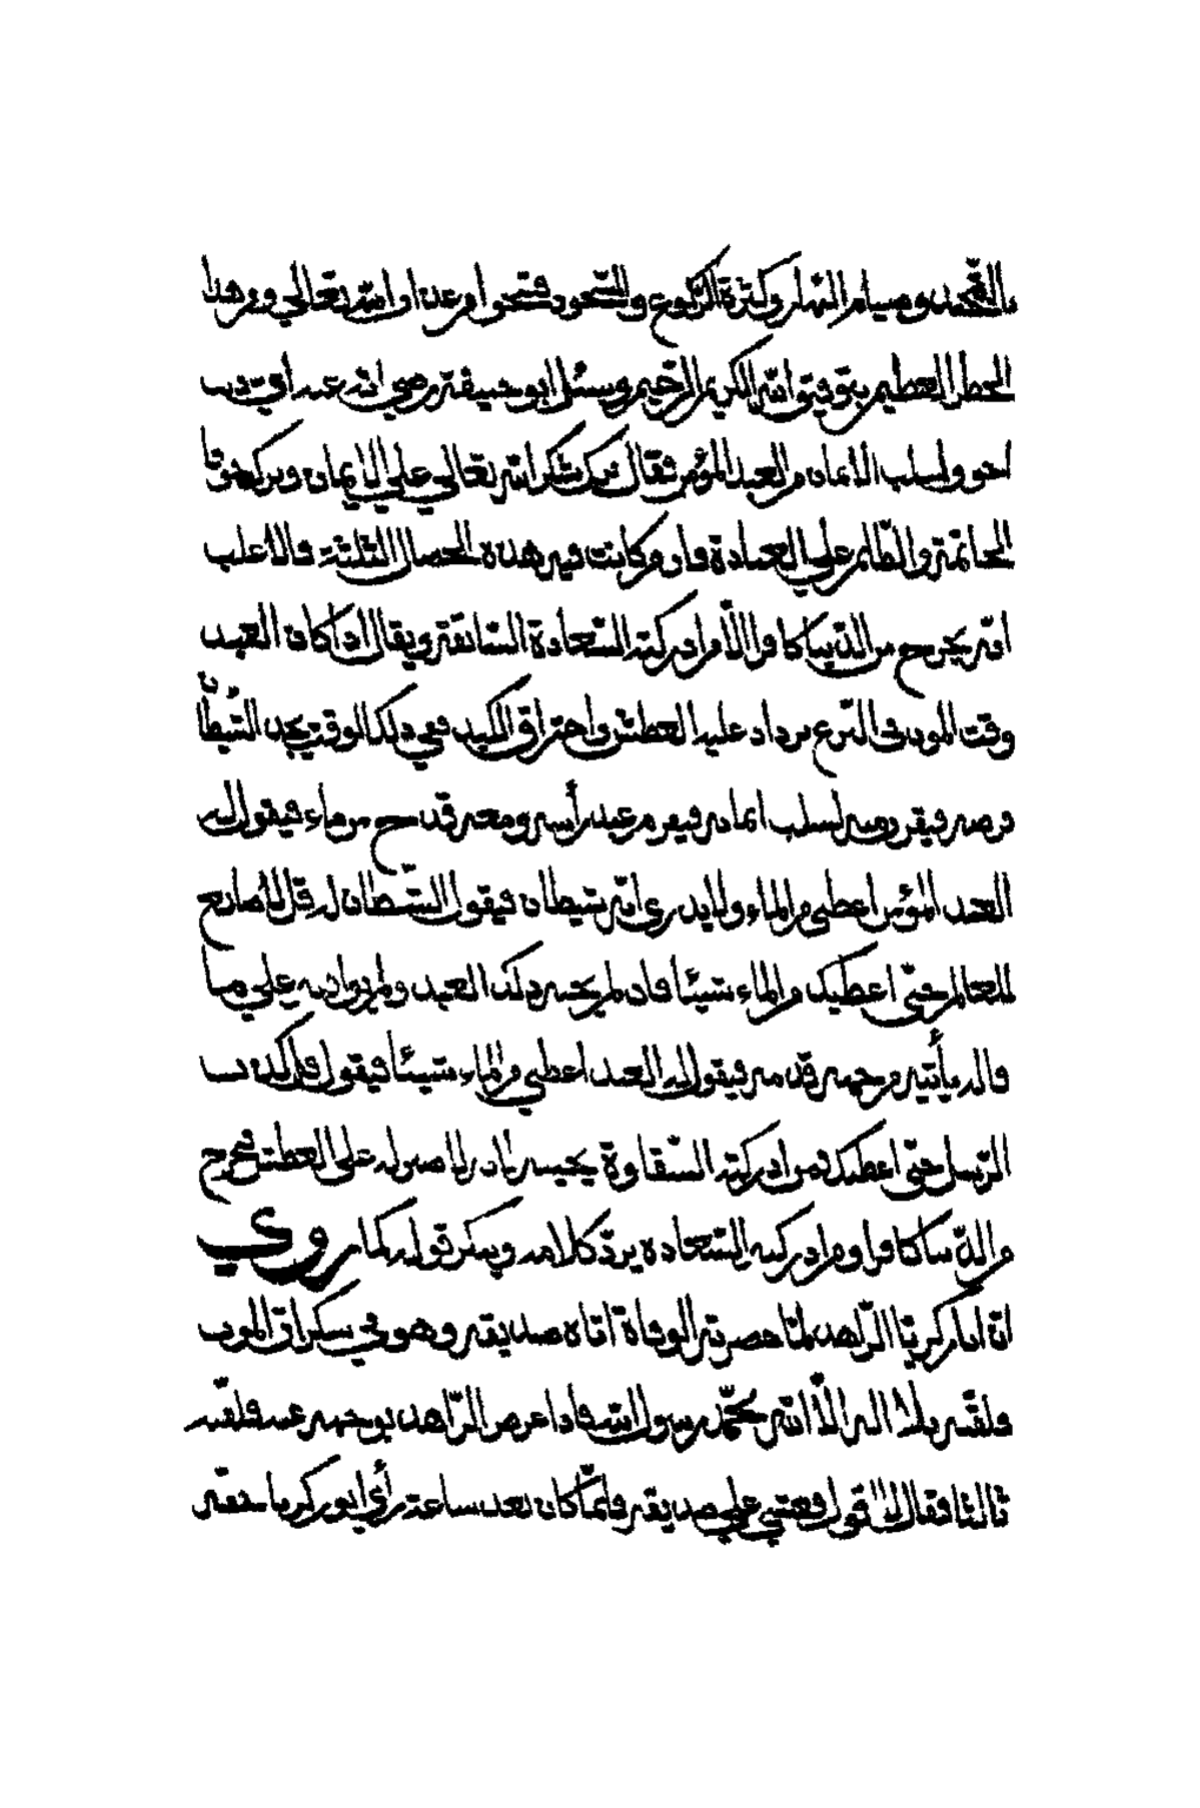 بالتهجد وصيام النهار وكثرة الركوع والسجود فتنجوا من عذاب الله تعالى ومن هذا
الخطر العظيم بتوفيق الله الكريم الرحيم وسئل ابو حنيفة رضي الله عنه أي ذنب
اخوف لسلب الايمان من العبد المؤمن فقال ترك شكر الله تعالى على الايمان وترك خوف
الخاتمة والظلم على العباد فان من كانت فيه هذه الخصال الثلثة فالاغلب
انه يخرج من الدنيا كافرا الا من ادركته السعادة السابقة ويقال اذا كان العبد
وقت الموت في النزع يزداد عليه العطش واحتراق الكبد ففي ذلك الوقت يجد الشيطان
فرصة فيقرب منه لسلب ايمانه فيقرب من عند رأسه ومعه قدح من ماء فيقول له
العبد المؤمن اعطني من الماء ولا يدري انه شيطان فيقول الشيطان له قل لا صانع
للعالم حتى اعطيك من الماء شيئا فان لم يجبه ذلك العبد
يأتيه من جهة قدمه فيقول له العبد اعطني من الماء شيئا فيقول قل كذب
الرسل حتى اعطيك فمن ادركته الشقاوة يجيبه لانه لا صبر له على العطش فيخرج
من الدنيا كافرا ومن ادركته السعادة يرد كلامه وينكر قوله كما روي
ان ابا زكريا الزاهد لما حضرته الوفاة اتاه صديقه وهو في سكرات الموت
فلقنه بلا اله الا الله محمد رسول الله فاذا اعرض الزاهد بوجهه عنه فلقنه
ثالثا فقال لا اقول فغشي على صديقه فلما كان بعد ساعة رأى ابو زكريا خفة